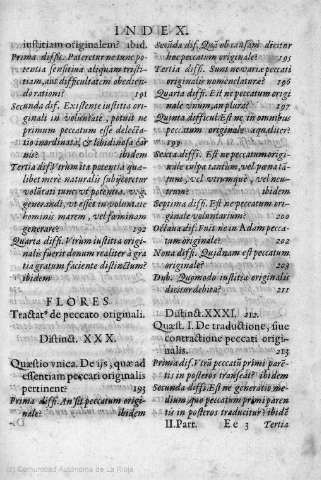 INDEX.
iustitiam originalem? ibid.
Prima diffi. Pateretur ne tunc potentia
sensitiua aliquam tristitiam,
aut difficultatem obediendo
rationi? 191
Secunda dif. Existente iustitia originali
in voluntate, potuit ne
primum peccatum esse delectatio
inordinata, & libidinosa carnis?
ibidem
Tertia diff. Vtrum ita potentia quælibet
mere naturalis subijceretur
volūtati tunc vt potentia. v.g.
generandi, vt esset in volūtate
hominis marem, vel fœminam
generare? 192
Quarta diff. Vtrum iustitia originalis
fuerit donum realiter à gratia
gratum faciente distinctum?
ibidem
FLORES
Tractatꝰ de peccato originali.
Distinct. XXX.
Quæstio vnica. De ijs, quæ ad
essentiam peccati originalis
pertinent? 193
Prima diff. An sit peccatum originale?
ibidem
Secūda dif. Quā ob causam dicitur
hoc peccatum originale? 195
Tertia diffi. Sunt ne variæ peccati
originalis nomenclaturæ? 196
Quarta diffi. Est ne peccatum originale
vnum, an plura? 197
Quinta difficul. Est ne in omnibus
peccatum originale æqualiter?
199
Sexta diffi. Est ne peccatum originale
culpa tantum, vel pœna tātum,
vel vtrumque, vel neutrum?
ibidem
Septima diffi. Est ne peccatum originale
voluntarium? 200
Octaua dif. Fuit ne in Adam peccatum
originale? 202
Nona diffi. Quidnam est peccatum
originale? 203
Dub. Quomodo iustitia originalis
dicitur debita? 211
Distinct. XXXI. 212.
Quæst. I. De traductione, siue
contractione peccati originalis.
213
Prima dif. Vtrū peccatū primi parētis
in posteros transeāt? ibidem
Secunda diffi. Est ne generatio medium,
quo peccatum primi parentis
in posteros traducitur? ibidē
II. Part. Ee 3 Tertia
(c) Comunidad Autónoma de La Rioja